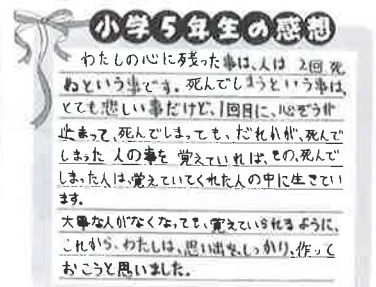 小学5年生の感想
わたしの心に残った事は、人は2回死
ぬという事です。死んでしまうという事は、
とても悲しい事だけど、1回目に、心ぞうが
止まって、死んでしまっても、だれかが、死んで
しまった人の事を覚えていれば、その、死んで
しまった人は、覚えていてくれた人の中に生きてい
ます。
大事な人がなくなっても、覚えていられるように、
これから、わたしは、思い出を、しっかり、作って
おこうと思いました。